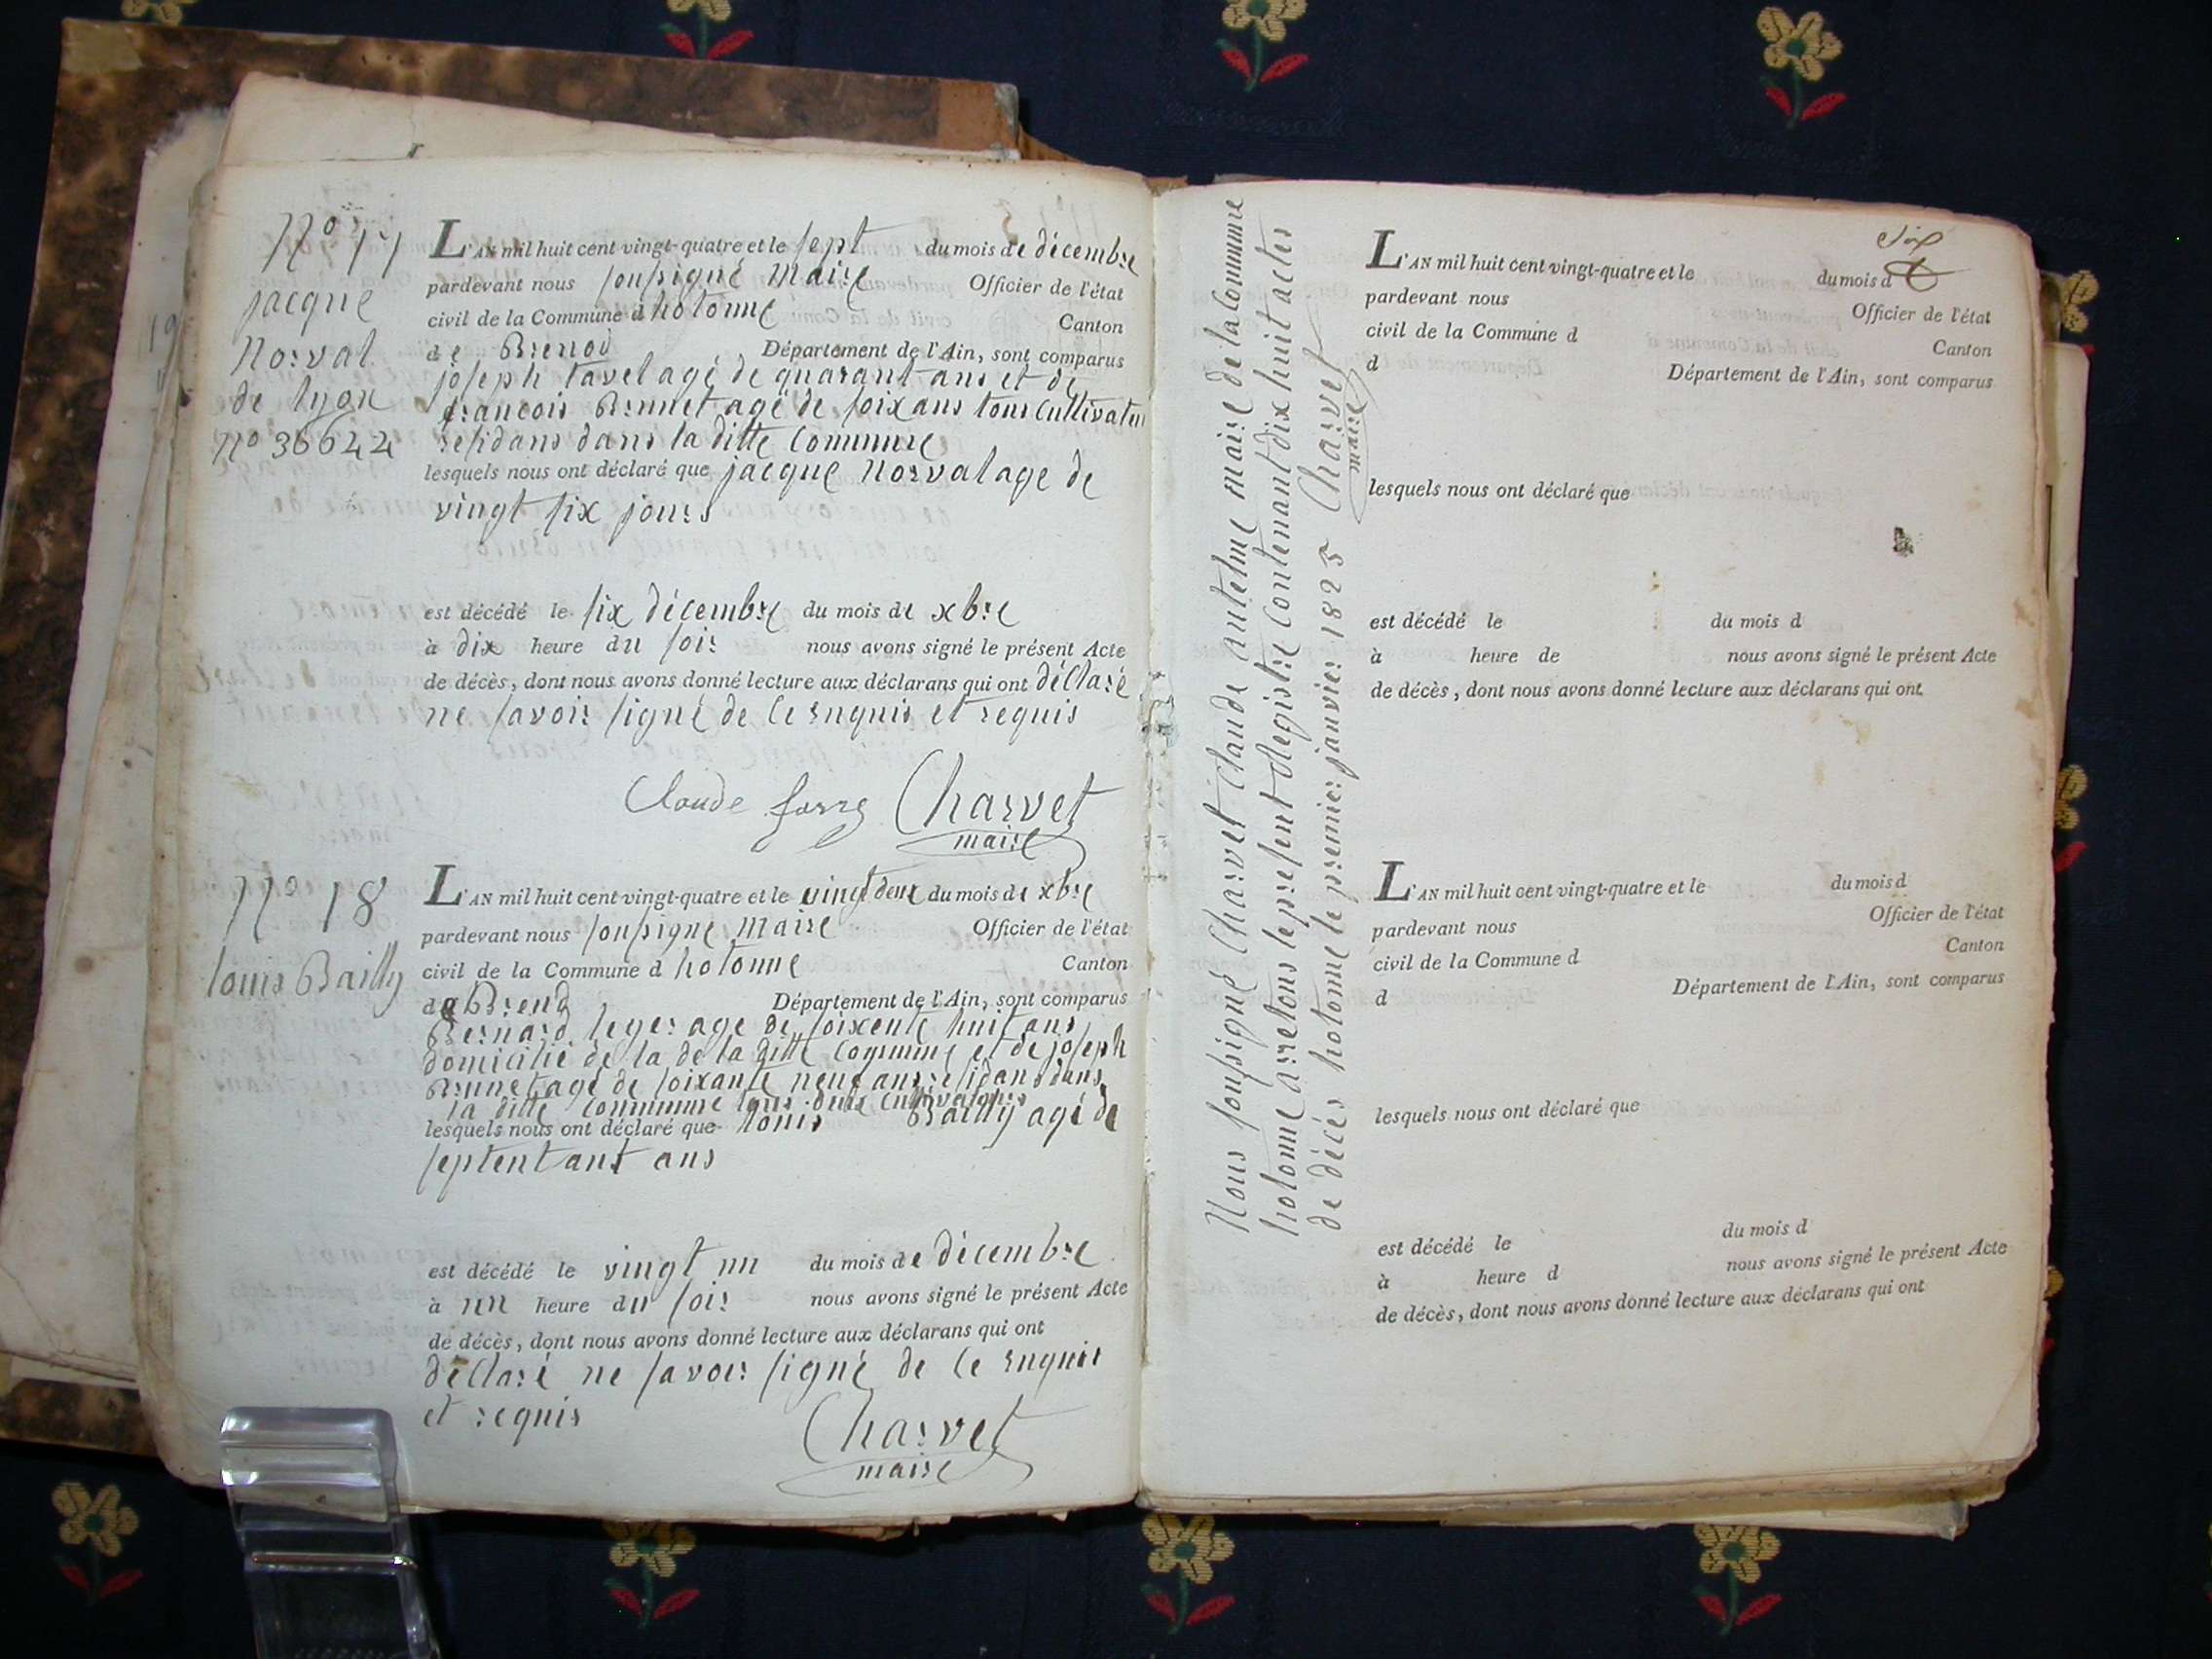 N.o 17
jacque
Norval
de lyon
n.o 36644
L'AN mil huit cent vingt-quatre et le sept du mois de décembre
pardevant nous soussigné maire Officier de l'état
civil de la Commune d hotonne Canton
de Brenod Département de l'Ain, sont comparus
joseph tavel agé de quarant ans et de
francois Brunet agé de soix ans tous cultivateu
residans dans la ditte commune
lesquels nous ont déclaré que jacque Norval age de
vingt six jours
est décédé le six décembre du mois de xbre
à dix heure du soir nous avons signé le présent Acte
de décès, dont nous avons donné lecture aux déclarans qui ont déclaré
ne savoir signé de ce enquis et requis
Claude Charvet
maire
N.o 18
louis Bailly
L'AN mil huit cent vingt-quatre et le vingt deux du mois de xbre
pardevant nous soussigné maire Officier de l'état
civil de la Commune d hotonne Canton
de Brenod Département de l'Ain, sont comparus
Bernard leger age de soixente huit ans
domicilié de la de la ditte commune et de joseph
Brunet agé de soixante neuf ans residans dans
la ditte commune tous deux cultivateurs
lesquels nous ont déclaré que louis Bailly agé de
septent ans
est décédé le vingt un du mois de décembre
à un heure du soir nous avons signé le présent Acte
de décès, dont nous avons donné lecture aux déclarans qui ont
déclaré ne savoir signé de ce enquis
et requis
Charvet
maire
Nous soussigné Charvet claude antelme maire de la commune
hotonne arretons le present registre contenant dix huit actes
de décés hotonne le premier janvier 1825 Charvet
maire
six
L'AN mil huit cent vingt-quatre et le du mois d
pardevant nous Officier de l'état
civil de la Commune d Canton
d Département de l'Ain, sont comparus
lesquels nous ont déclaré que
est décédé le du mois d
à heure de nous avons signé le présent Acte
de décès, dont nous avons donné lecture aux déclarans qui ont
L'AN mil huit cent vingt-quatre et le du mois d
pardevant nous Officier de l'état
civil de la Commune d Canton
d Département de l'Ain, sont comparus
lesquels nous ont déclaré que
est décédé le du mois d
à heure d nous avons signé le présent Acte
de décès, dont nous avons donné lecture aux déclarans qui ont